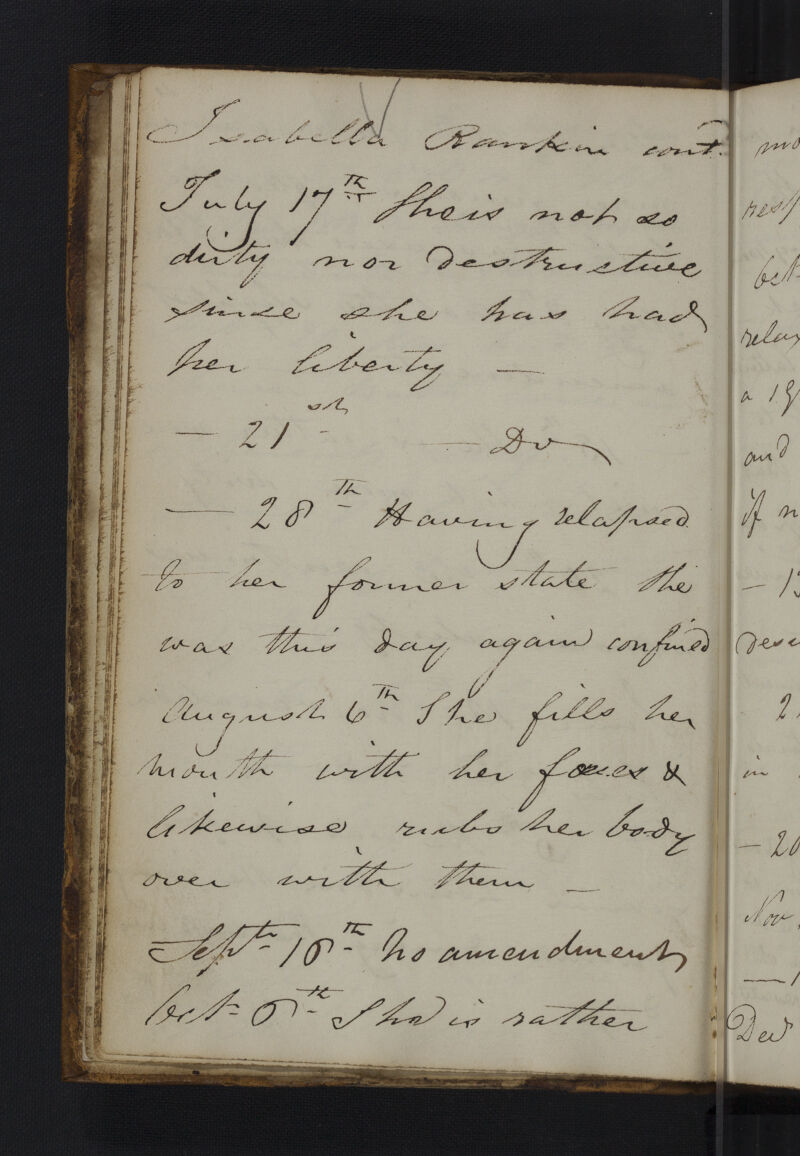 Isabella Rankin cont.
July 17th She is not so
dirty nor destructive
since she has had
her liberty —
— 21st — Do
— 28th Having relapsed
to her former state she
was this day again confined
August 6th She fills her
mouth with her fæces &
likewise rubs her body
over with them —
Septr 18th No amendment
Oct 6th She is rather
mo
resp
bet
relax
a
and
if n
— 13
in
— 20
Nov
Dec